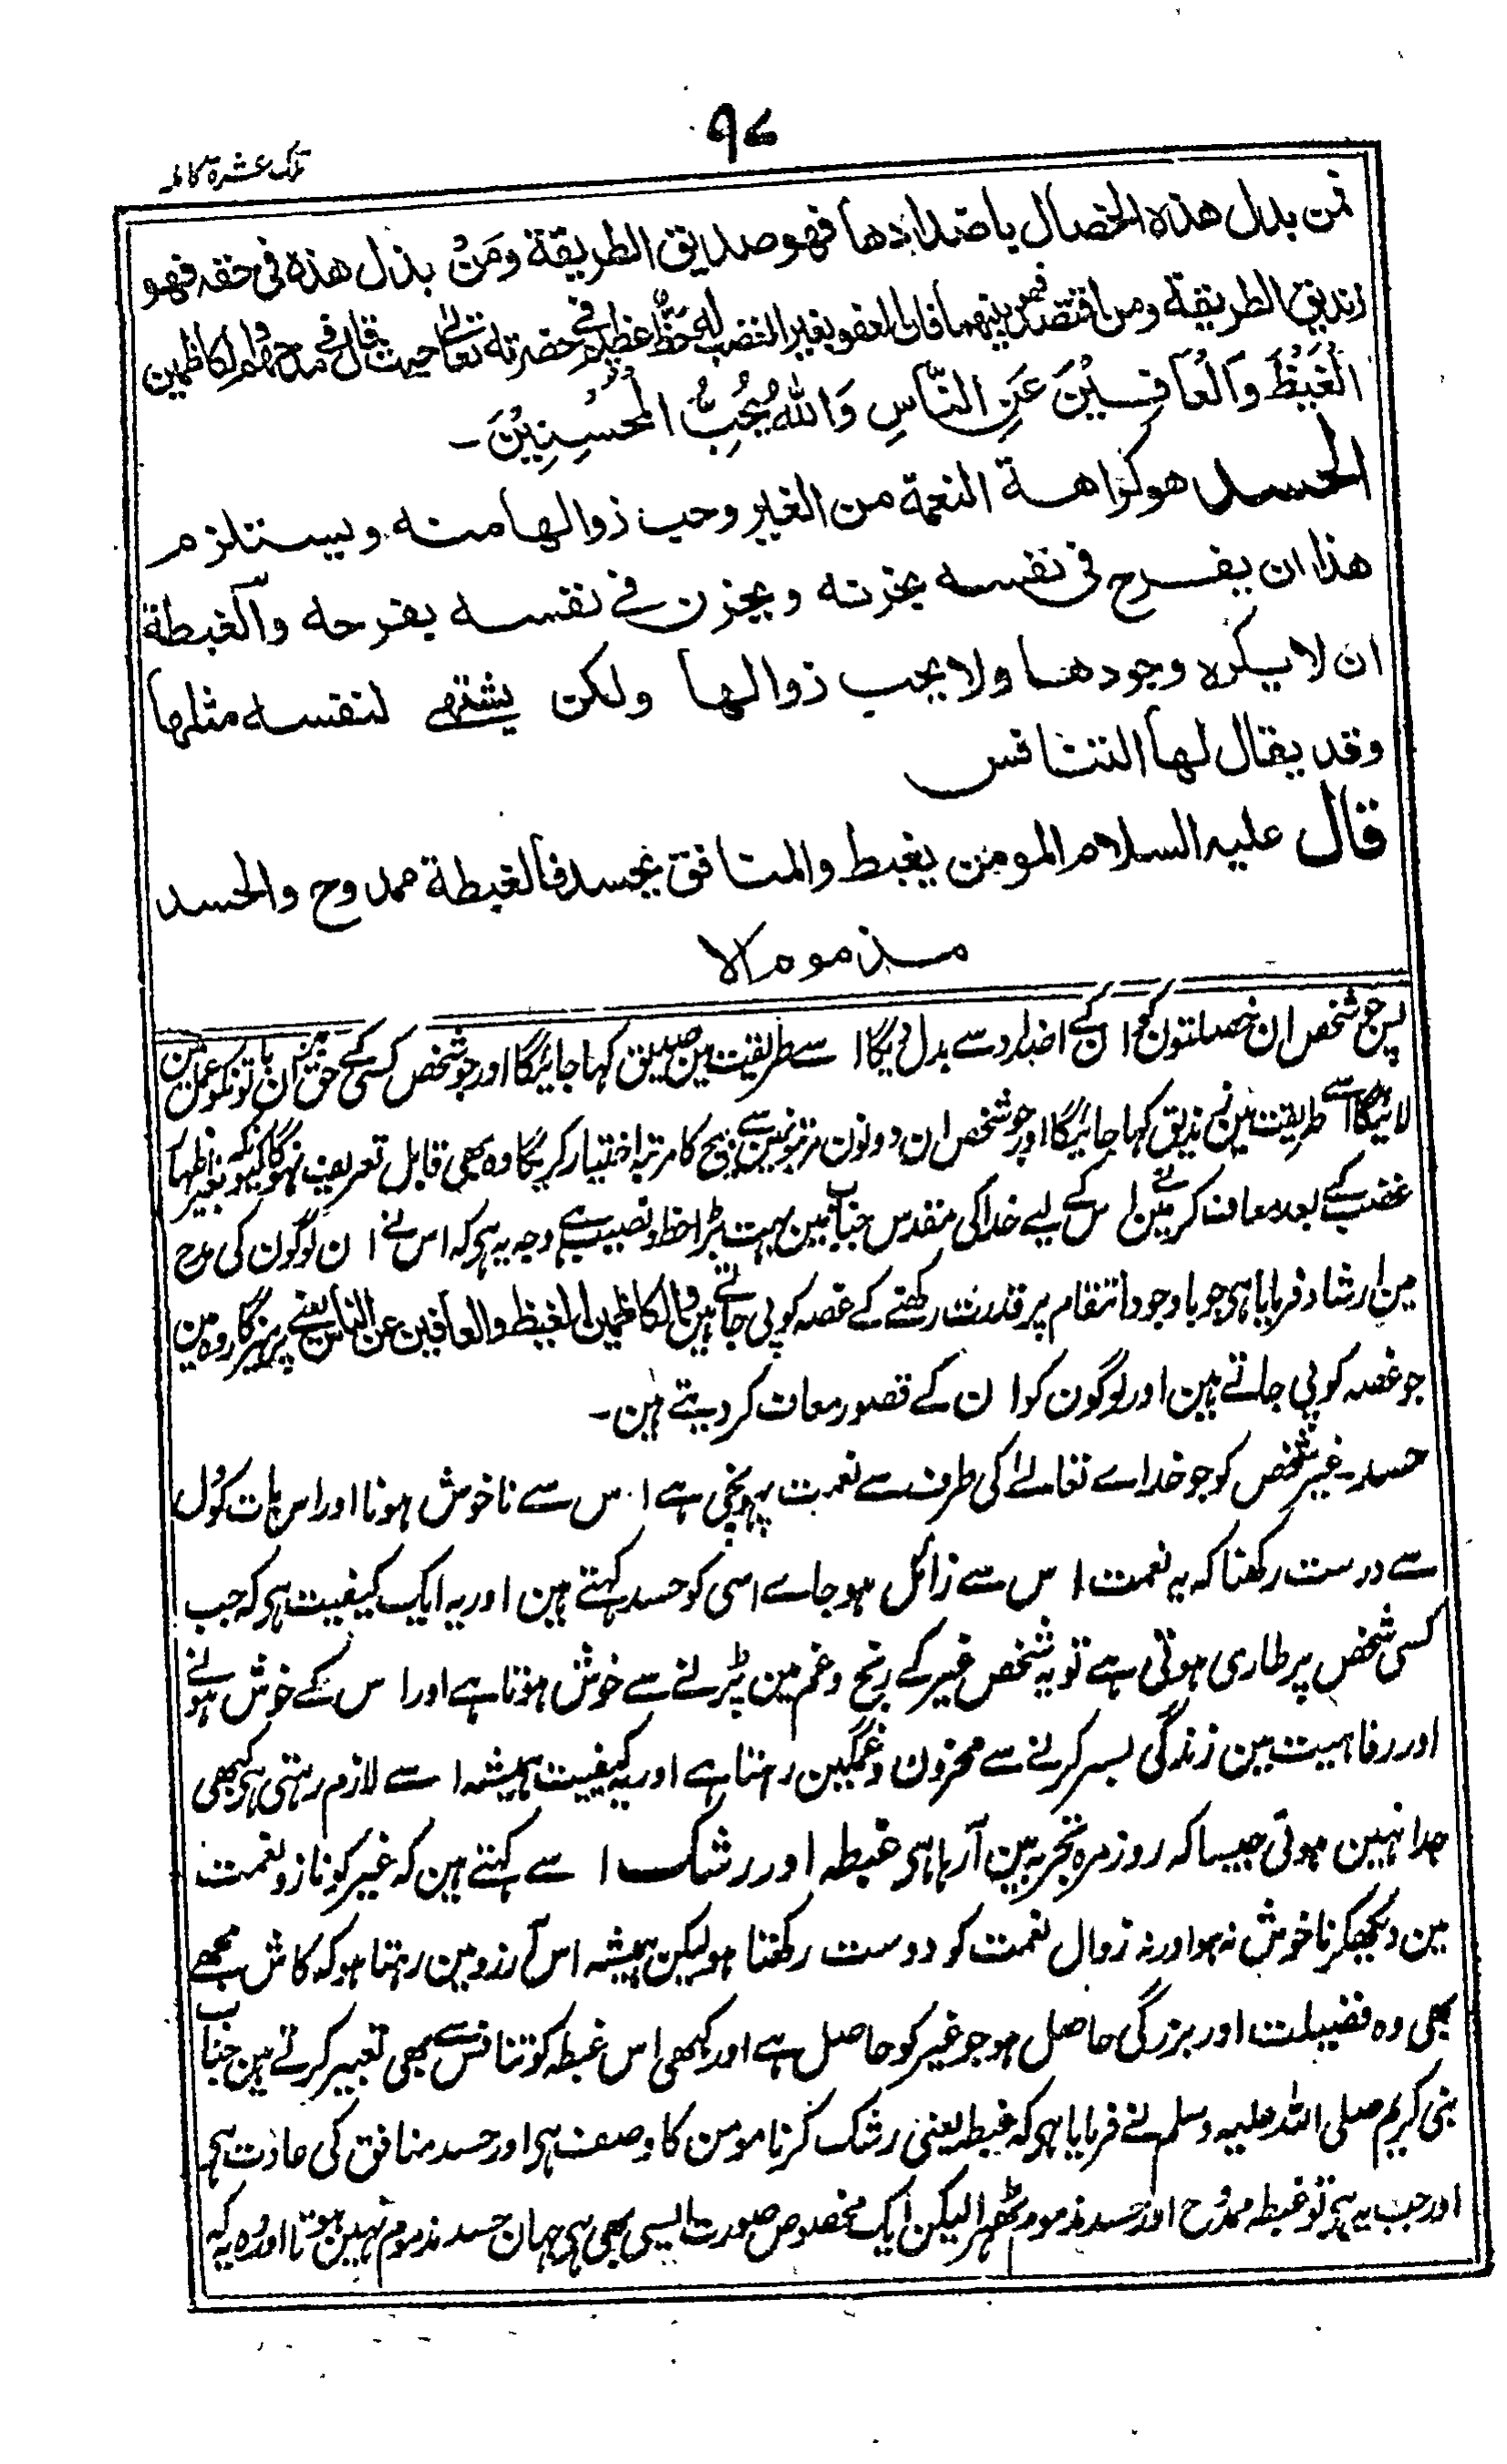 ۹۷
تلک عشرة کاملہ
فمن بدل هذه الخصال باضدادها فهو صديق الطريقة ومَنْ بذل هذه فى حقه فهو
زنديق الطريقة ومن اقتصد بينهما فان العفو بغير الغضب له حَظٌّ عظيمٌ فى حضرته تعالىٰ حيث قال فى مدحهم والكاظمين
الْغَيْظَ وَالْعَافِيْنَ عَنِ النَّاسِ وَاللهُ يُحِبُّ الْمُحْسِنِيْنَ۔
الحسد هو كراهة النعمة من الغير وحب زوالها منه ويستلزم
هذا ان يفرح فى نفسه بحزنه ويحزن فى نفسه بفرحه والغبطة
ان لا يكره وجودها ولا يحب زوالها ولكن يشتهى لنفسه مثلها
وقد يقال لها التنافس
قال عليه السلام المومن يغبط والمنافق يحسد فالغبطة ممدوح والحسد
مذموم الا
پس جو شخص ان خصلتون کو ان کے اضداد سے بدل دیگا اسے طریقت مین صدیق کہا جائیگا اور جو شخص کسی کے حق مین ان باتونکو عمل مین
لائیگا اسے طریقت مین زندیق کہا جائیگا اور جو شخص ان دونون مرتبونمین سے بیچ کا مرتبہ اختیار کریگا وہ بھی قابل تعریف نہوگا کیونکہ بغیر اظہار
غضب کے بعد معاف کرتے ہین اس کے لیے خدا کی مقدس جناب مین بہت بڑا حظ و نصیب ہے وجہ یہ ہی کہ اس نے ان لوگون کی مدح
مین ارشاد فرمایا ہی جو باوجود انتقام پر قدرت رکھنے کے غصہ کو پی جاتے ہین والکاظمین الغیظ والعافین عن الناس یعنے پرہیزگار وہ ہین
جو غصہ کو پی جاتے ہین اور لوگون کو ان کے قصور معاف کر دیتے ہین۔
حسد۔ غیر شخص کو جو خداے تعالےٰ کی طرف سے نعمت پہونچی ہے اس سے ناخوش ہونا اور اس بات کو دل
سے دوست رکھنا کہ یہ نعمت اس سے زائل ہو جاے اسی کو حسد کہتے ہین اور یہ ایک کیفیت ہی کہ جب
کسی شخص پر طاری ہوتی ہے تو یہ شخص غیر کے رنج و غم مین پڑنے سے خوش ہوتا ہے اور اس کے خوش ہونے
اور رفاہیت مین زندگی بسر کرنے سے محزون و غمگین رہتا ہے اور یہ کیفیت ہمیشہ اسے لازم رہتی ہی کبھی
جدا نہین ہوتی جیسا کہ روز مرہ تجربہ مین آرہا ہی غبطہ اور رشک اسے کہتے ہین کہ غیر کو ناز و نعمت
مین دیکھکر ناخوش نہ ہو اور نہ زوال نعمت کو دوست رکھتا ہو لیکن ہمیشہ اس آرزو مین رہتا ہو کہ کاش مجھے
بھی وہ فضیلت اور بزرگی حاصل ہو جو غیر کو حاصل ہے اور کبھی اس غبطہ کو تنافس سے بھی تعبیر کرتے ہین جناب
نبی کریم صلی اللہ علیہ وسلم نے فرمایا ہی کہ غبطہ یعنی رشک کرنا مومن کا وصف ہی اور حسد منافق کی عادت ہی
اور جب یہ ہی تو غبطہ ممدوح اور حسد مذموم ٹھہرا لیکن ایک مخصوص صورت ایسی بھی ہی جہان حسد مذموم نہین ہوتا اور وہ یہ کہ